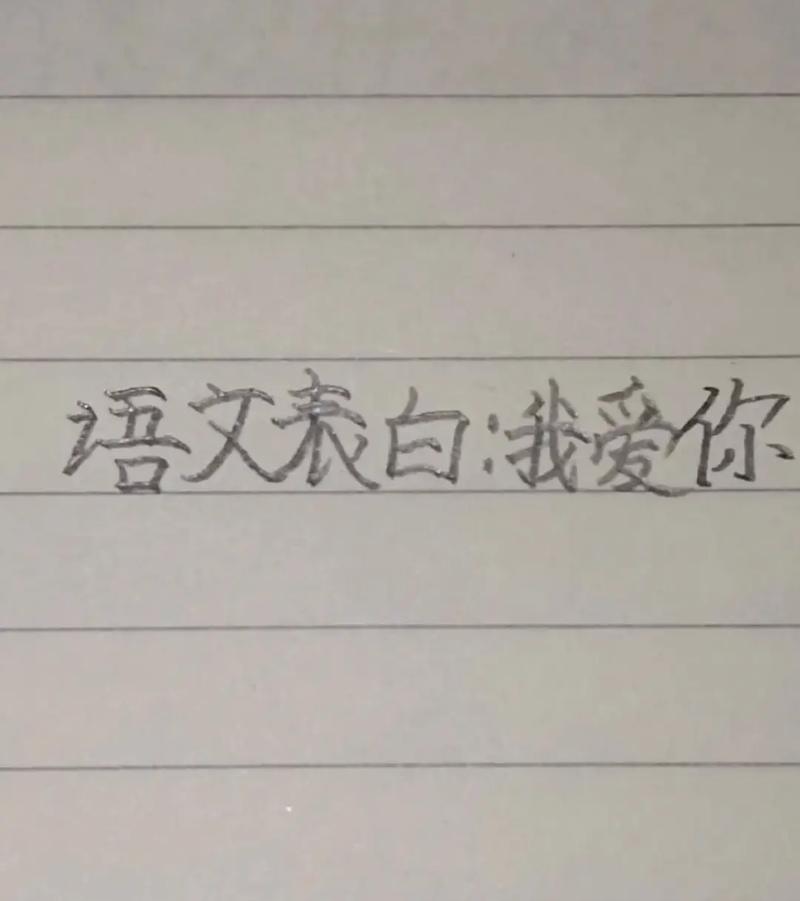 语文表白:我爱你